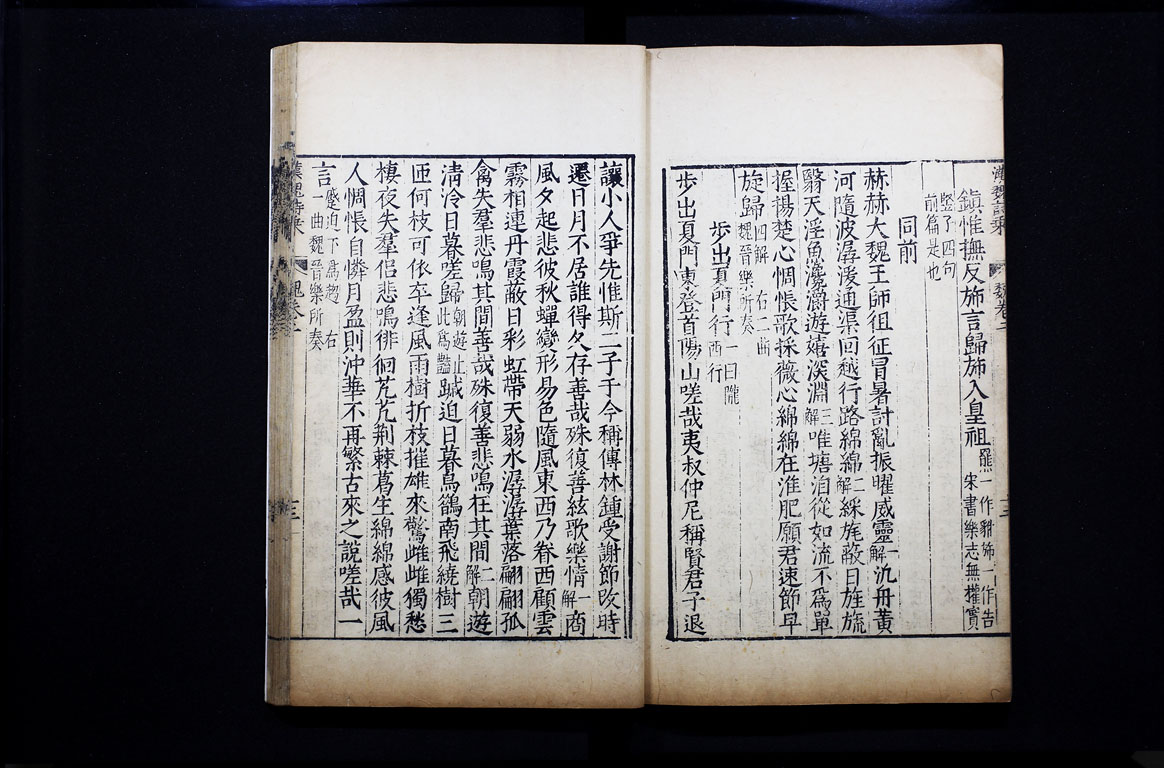 漢魏詩乘 魏卷二 十三
鎮惟撫反旆言歸旆入皇祖羆一作貔旆一作告
宋書樂志無權實
豎子四句
前篇是也
同前
赫赫大魏王師徂征冒暑討亂振曜威靈一解汎舟黃
河隨波潺湲通渠回越行路綿綿二解綵旄蔽日旌旒
翳天淫魚瀺灂遊嬉深淵三解唯塘泊從如流不爲單
握揚楚心惆悵歌採薇心綿綿在淮肥願君速節早
旋歸四解 右二曲
魏晉樂所奏
步出夏門行一曰隴
西行
步出夏門東登首陽山嗟哉夷叔仲尼稱賢君子退
讓小人爭先惟斯二子于今稱傳林鍾受謝節改時
遷日月不居誰得久存善哉殊復善絃歌樂情一解商
風夕起悲彼秋蟬變形易色隨風東西乃眷西顧雲
霧相連丹霞蔽日彩虹帶天弱水潺潺葉落翩翩孤
禽失羣悲鳴其間善哉殊復善悲鳴在其間二解朝遊
清泠日暮嗟歸朝遊止
此爲豔蹴迫日暮烏鵲南飛繞樹三
匝何枝可依卒逢風雨樹折枝摧雄來驚雌雌獨愁
棲夜失羣侶悲鳴徘徊芃芃荊棘葛生綿綿感彼風
人惆悵自憐月盈則沖華不再繁古來之說嗟哉一
言蹙迫下爲趨 右
一曲魏晉樂所奏